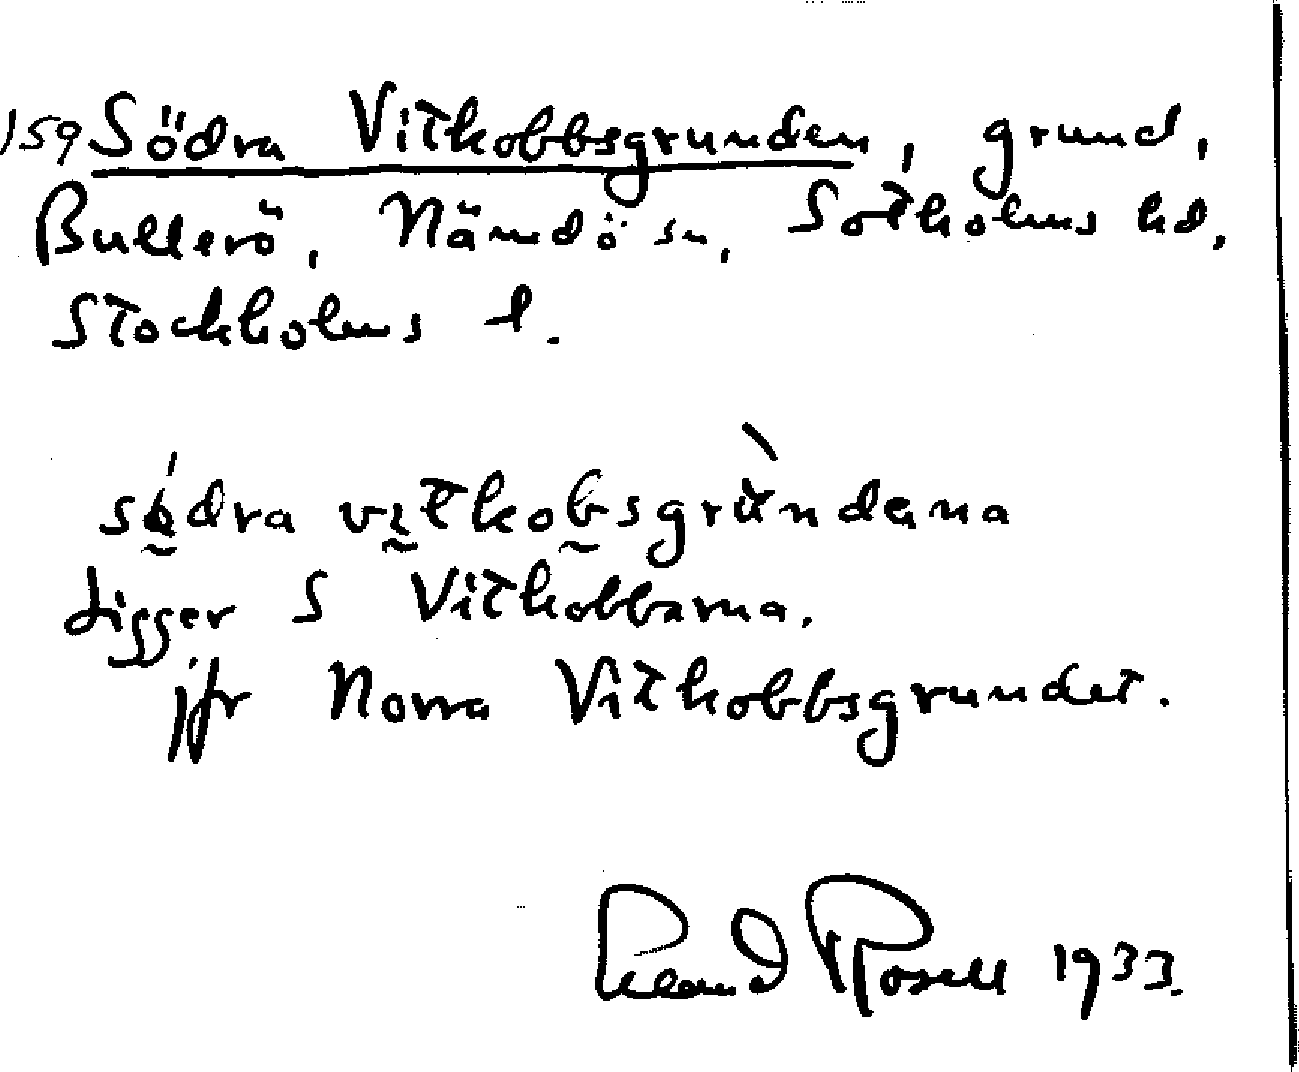 159 Södra Vitkobbsgrunden, grund,
Bullerö, Nämdö sn, Sotholms hd,
Stockholms l.
södra vitkobsgrùndena
Ligger S Vitkobbarna.
jfr Norra Vitkobbsgrundet.
Rosell 1933.